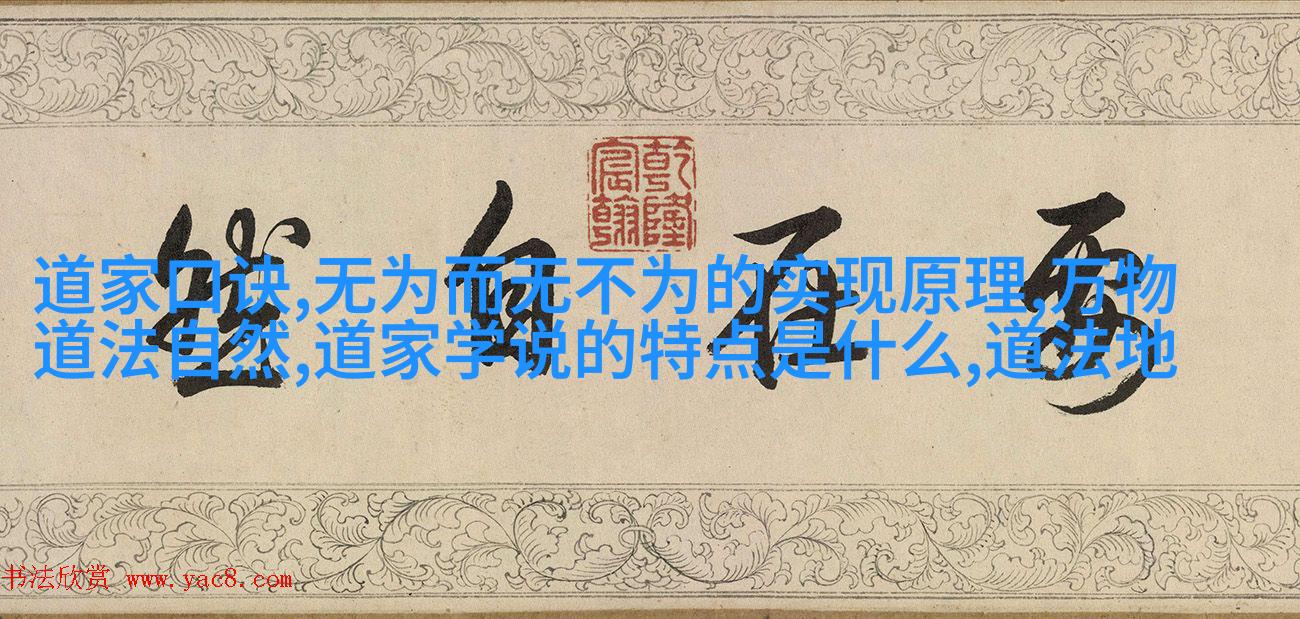 乾隆宸翰
道家口诀,无为而无不为的实现原理,万物
道法自然,道家学说的特点是什么,道法地
在自然
书法欣赏 www.yac8.com